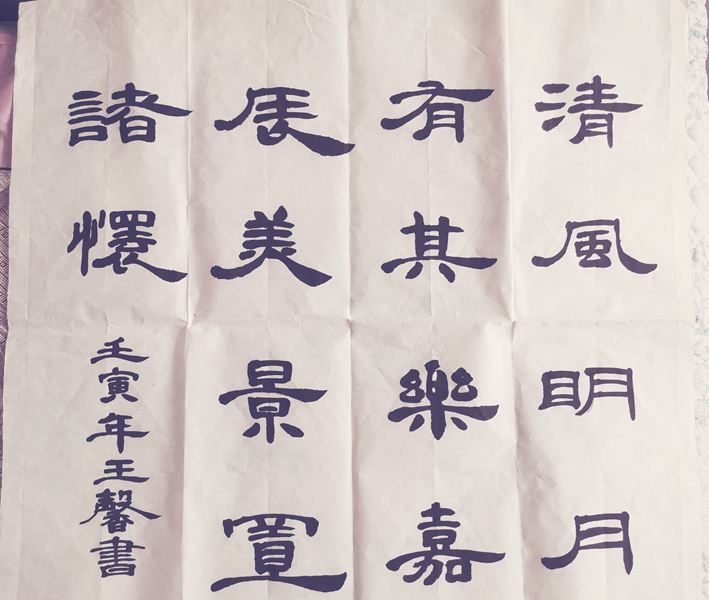 清風明月
有其樂嘉
辰美景置
諸懷
壬寅年王馨書